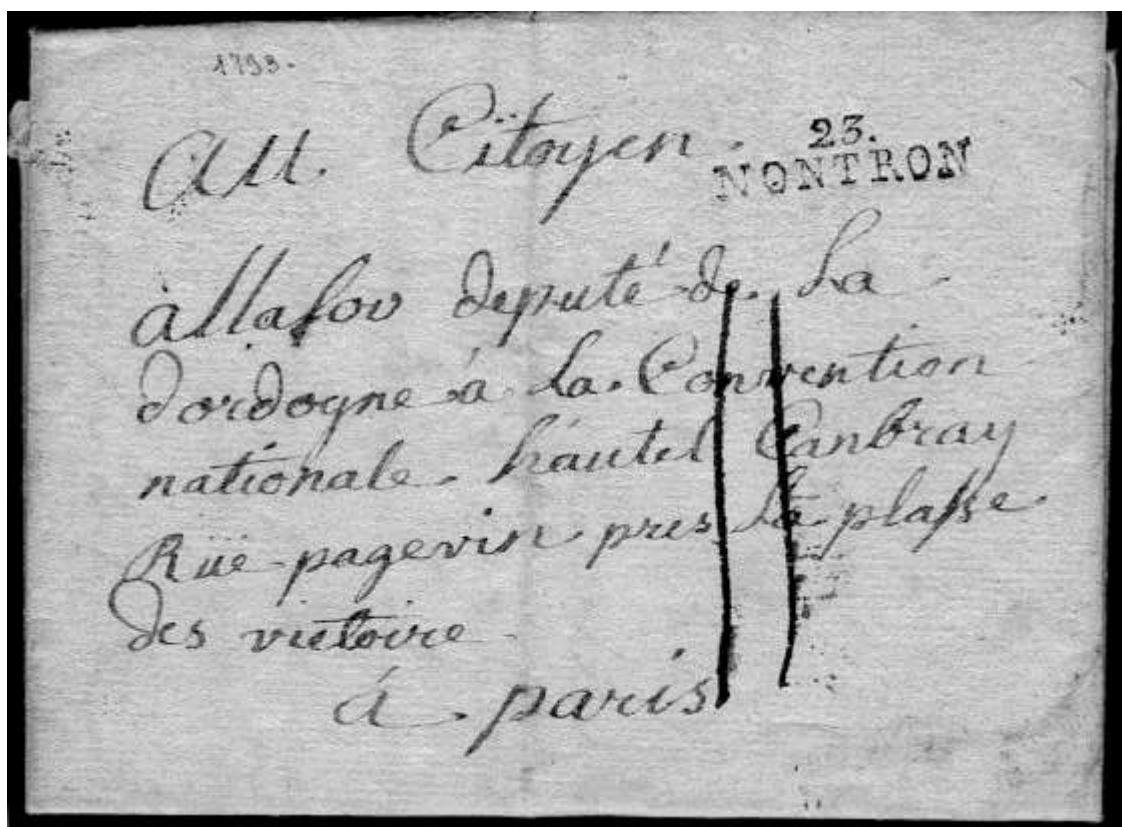 1793.
Au. Citoyen.
23.
NONTRON
àllafov deputé de La
dordogne à La Convention
nationale. háutel Canbray
Rüe pagevin pres La plasse
des victoire
á paris